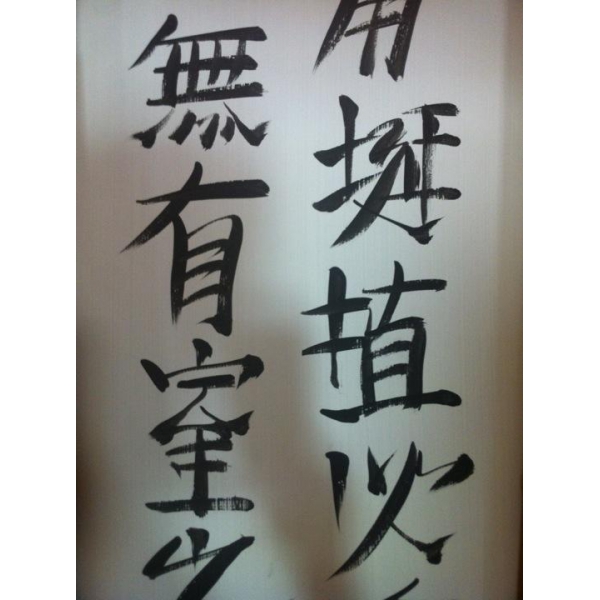 用埏埴以
無有室之